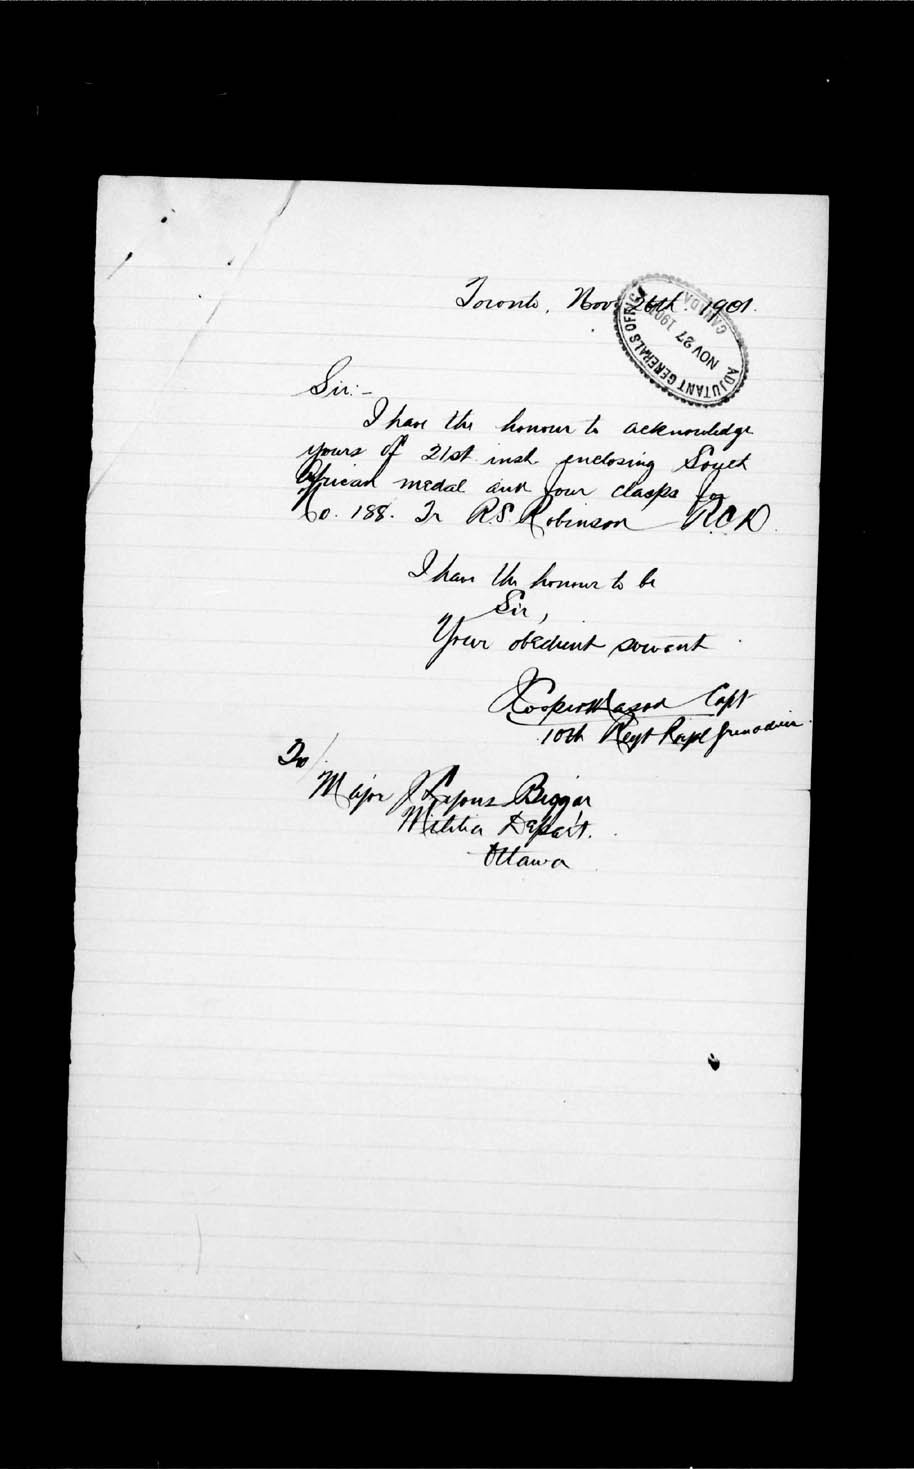 Toronto, Nov 26th. 1901.
ADJUTANT GENERALS OFFICE
NOV 27 1901
CANADA
Sir:-
I have the honour to acknowledge
yours of 21st inst. enclosing South
African medal and four clasps for
No. 188. Tr R.S. Robinson R.C.D.
I have the honour to be
Sir,
Your obedient servant
J Cooper Mason Capt
10th Regt Royl Grenadiers.
To/
Major J Lyons Biggar
Militia Depart.
Ottawa